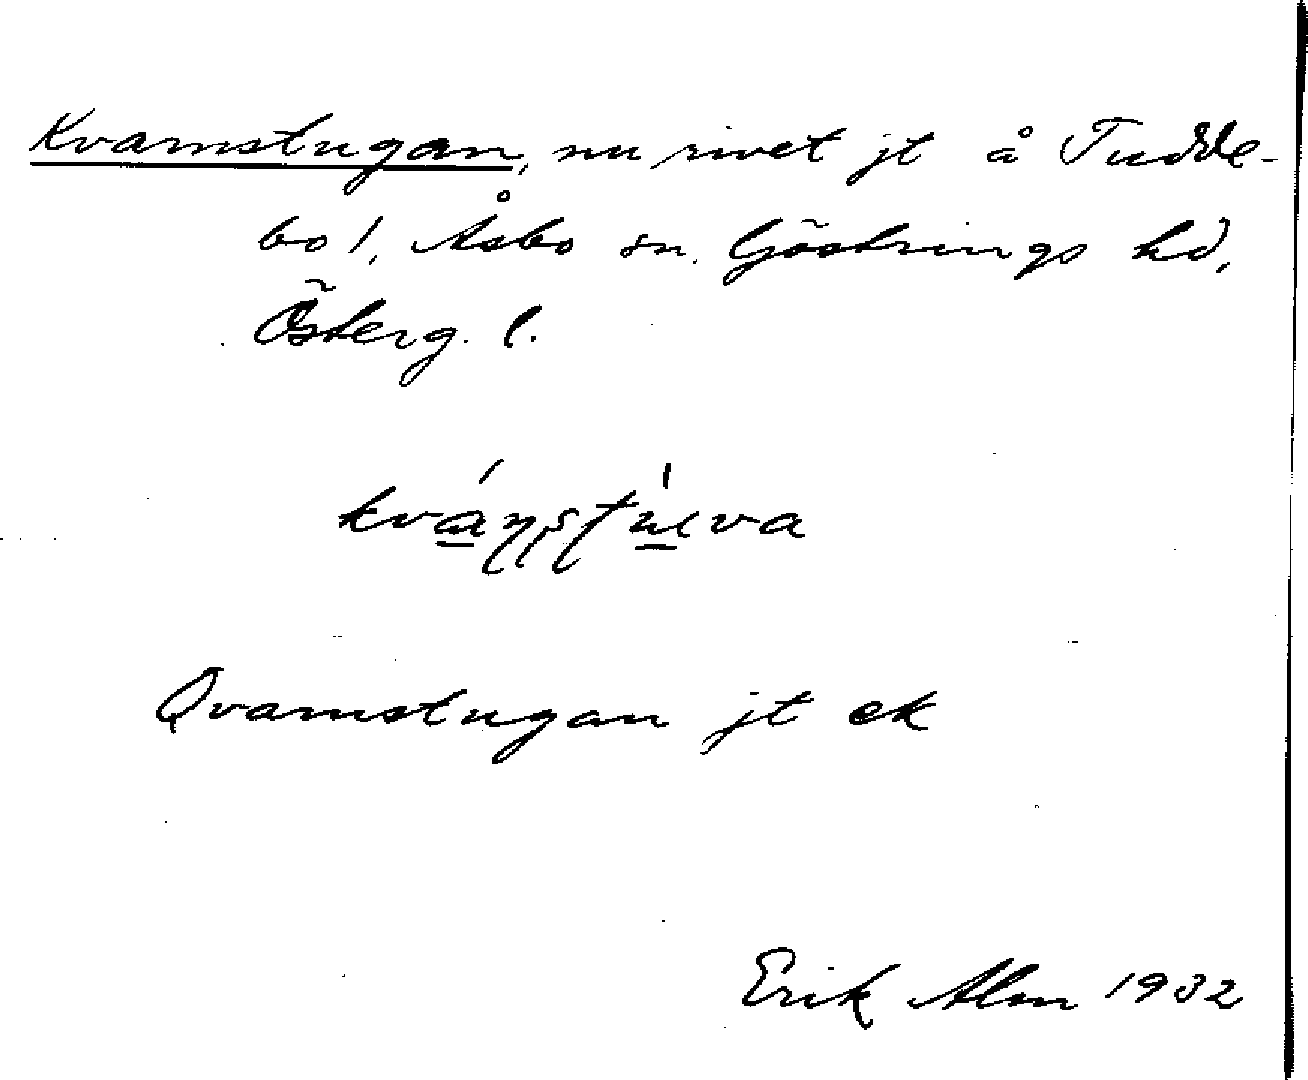 Kvarnstugan, nu rivet jt å Tudde-
bo 1, Åsbo sn. Göstrings hd,
Österg. l.
Qvarnstugan jt ek
Erik Alm 1932